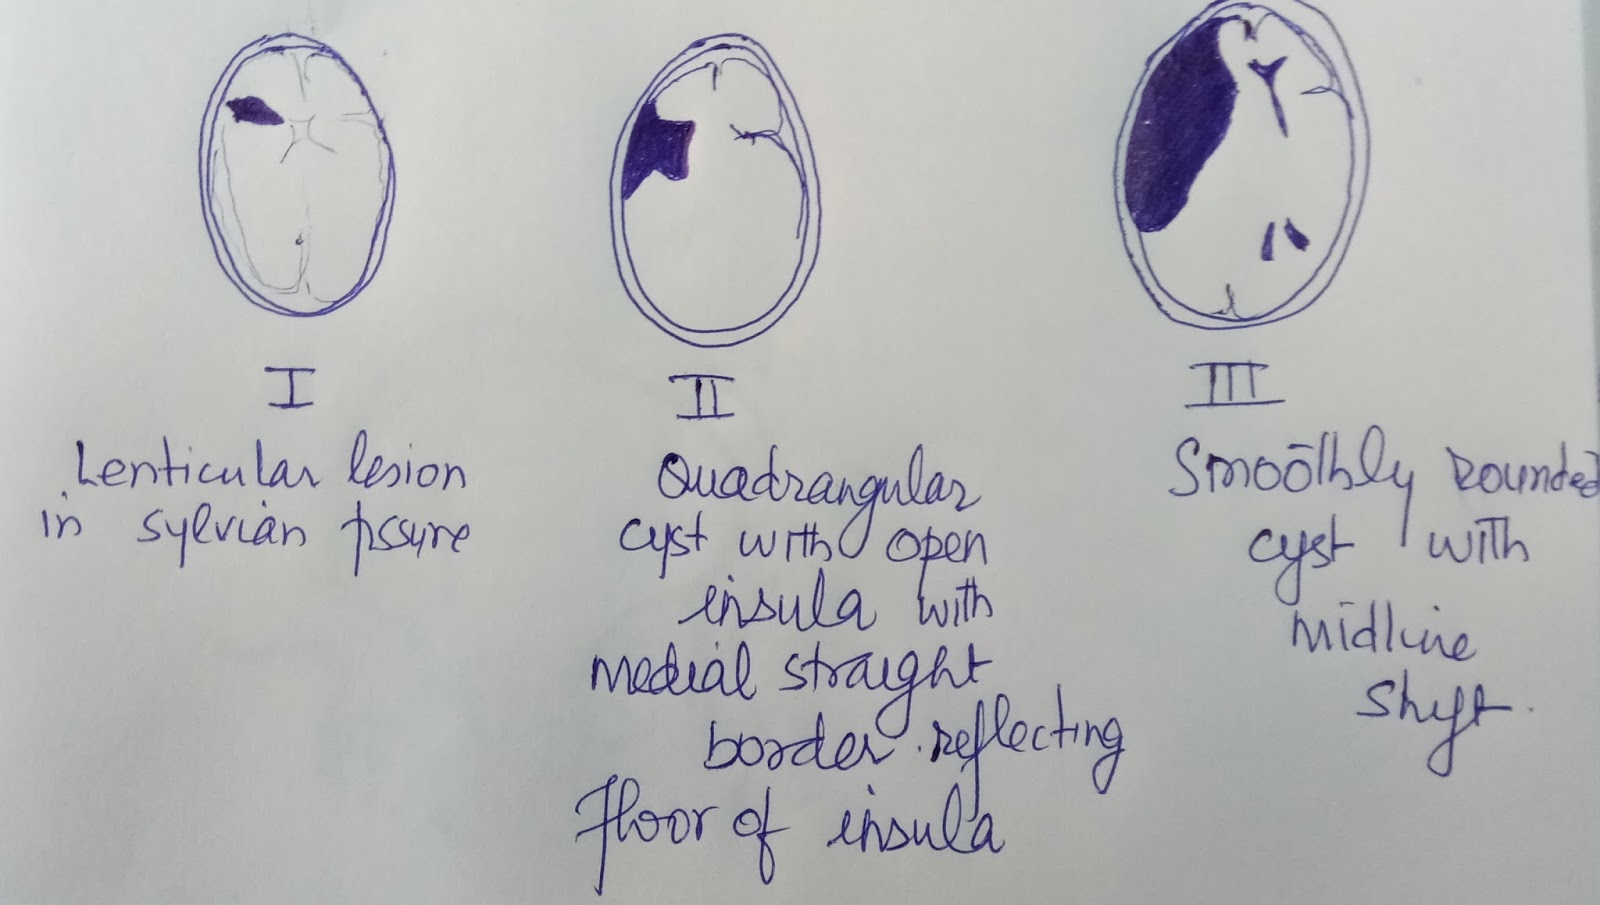 I
Lenticular lesion
in sylvian fissure
II
Quadrangular
cyst with open
insula with
medial straight
border reflecting
Floor of insula
III
Smoothly rounded
cyst with
midline
shift.